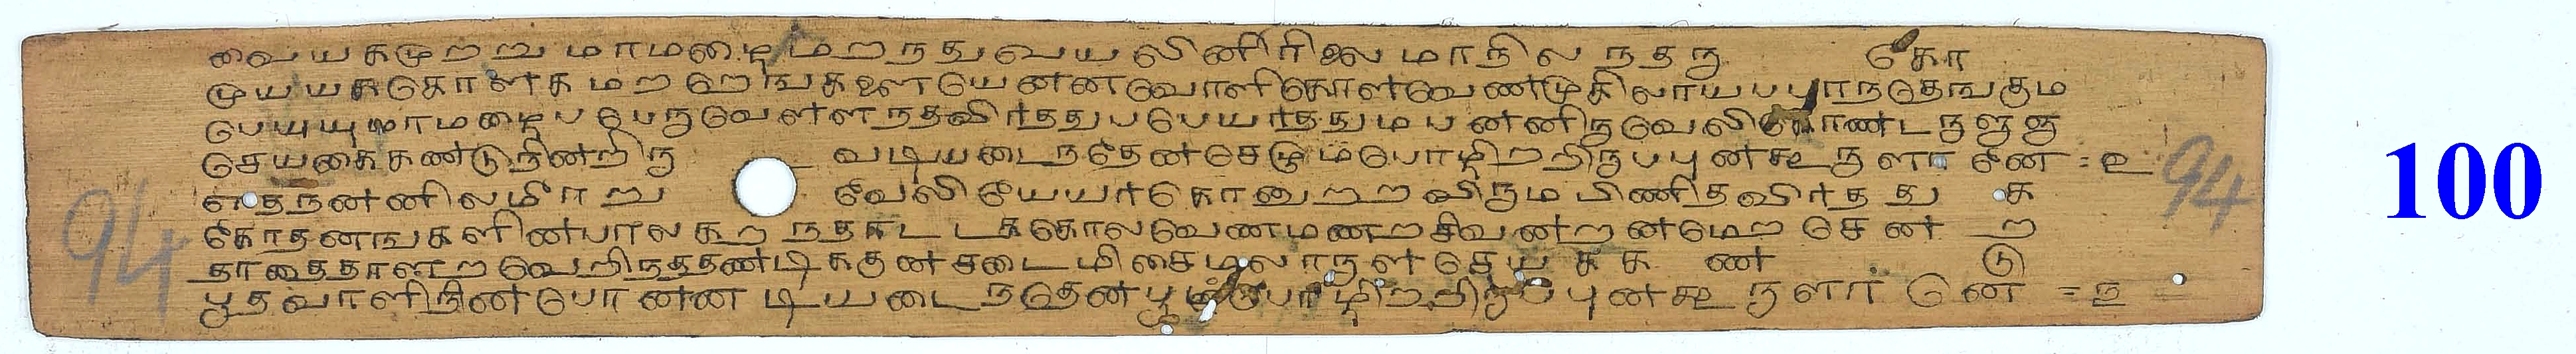 வையகமுறறு மாமழைமறநதுவயலினீரிலைமாநிலநதரு கோ
முயயகொளக மறறெஙகளையெனனவொளிகொளவெணமுகிலாயபபரநதெஙகும
பெயயுமாமழைபபெருவெளளநதவிரததுபபெயரததுமபனனிருவெலிகொணடருளுஞ
செயகைகணடுநினறிரு வடியடைநதெனசெழுமபொழிறறிருபபுனகூருளானே = ௨
எதநனனிலமீறு வேலியேயரகோனுறறவிருமபிணிதவிரதது க
கோதனஙகளினபாலகறநதாடடககொலவெணமணறசிவனறனமெறசென ற
தாதைதாளறவெறிநததணடிககுனசடைமிசைமலரருளசெயகக ண டு
பூதவாளிநினபொனனடியடைநதெனபூமபொழிறறிருபபுனகூருளானே = ௩
94
94
100